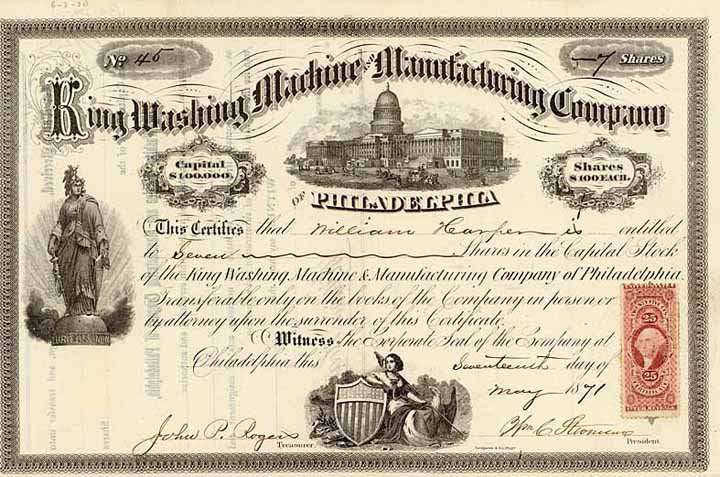 6-2-30
No 45
7 Shares
King Washing Machine AND Manufacturing Company
Capital $100,000.
Shares $100 EACH.
OF PHILADELPHIA
This Certifies that William Harper is entitled
to Seven Shares in the Capital Stock
of the King Washing Machine & Manufacturing Company of Philadelphia.
Transferable only on the books of the Company in person or
by attorney upon the surrender of this Certificate.
Witness the Corporate Seal of the Company at
Philadelphia this Seventeenth day of
May 1871
John P. Rogers
Treasurer.
Wm C
President.
25 25